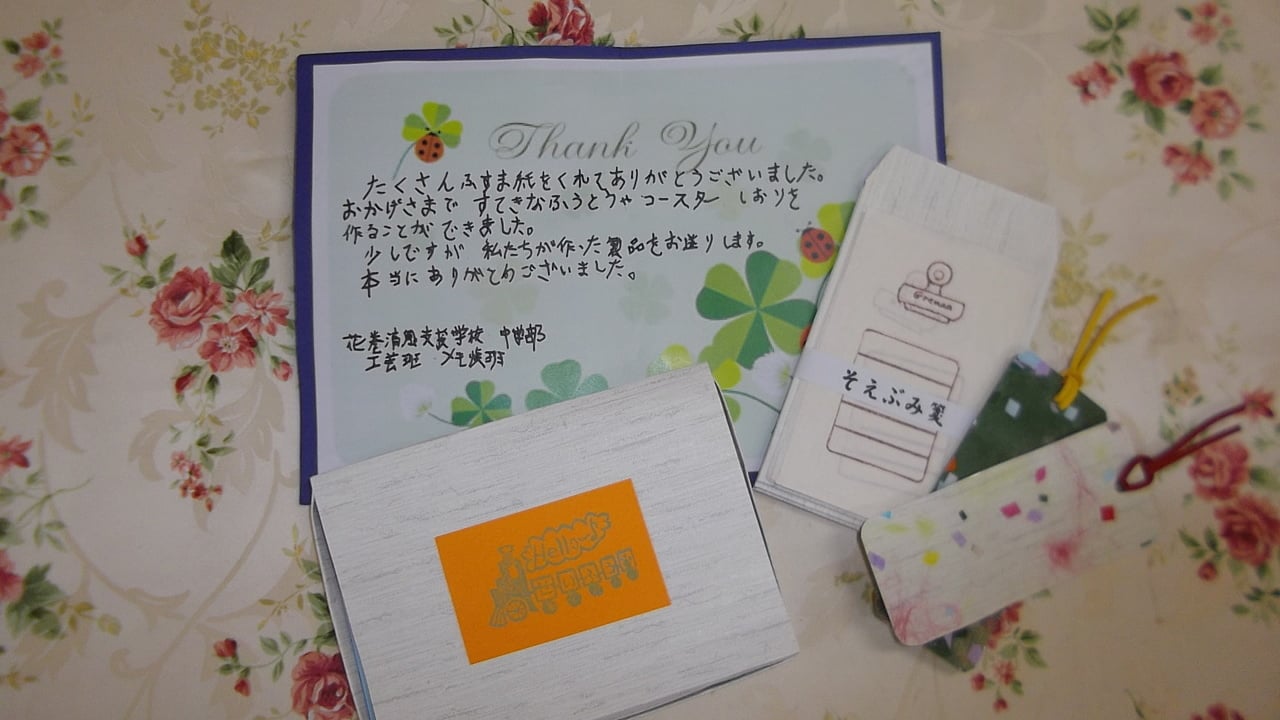 Thank You
たくさんふすま紙をくれてありがとうございました。
おかげさまで すてきなふうとうや コースター しおりを
作ることが できました。
少しですが 私たちが作った製品をお送りします。
本当にありがとうございました。
花巻清風支援学校 中学部
工芸班 メモ帳班
そえぶみ箋
Hello